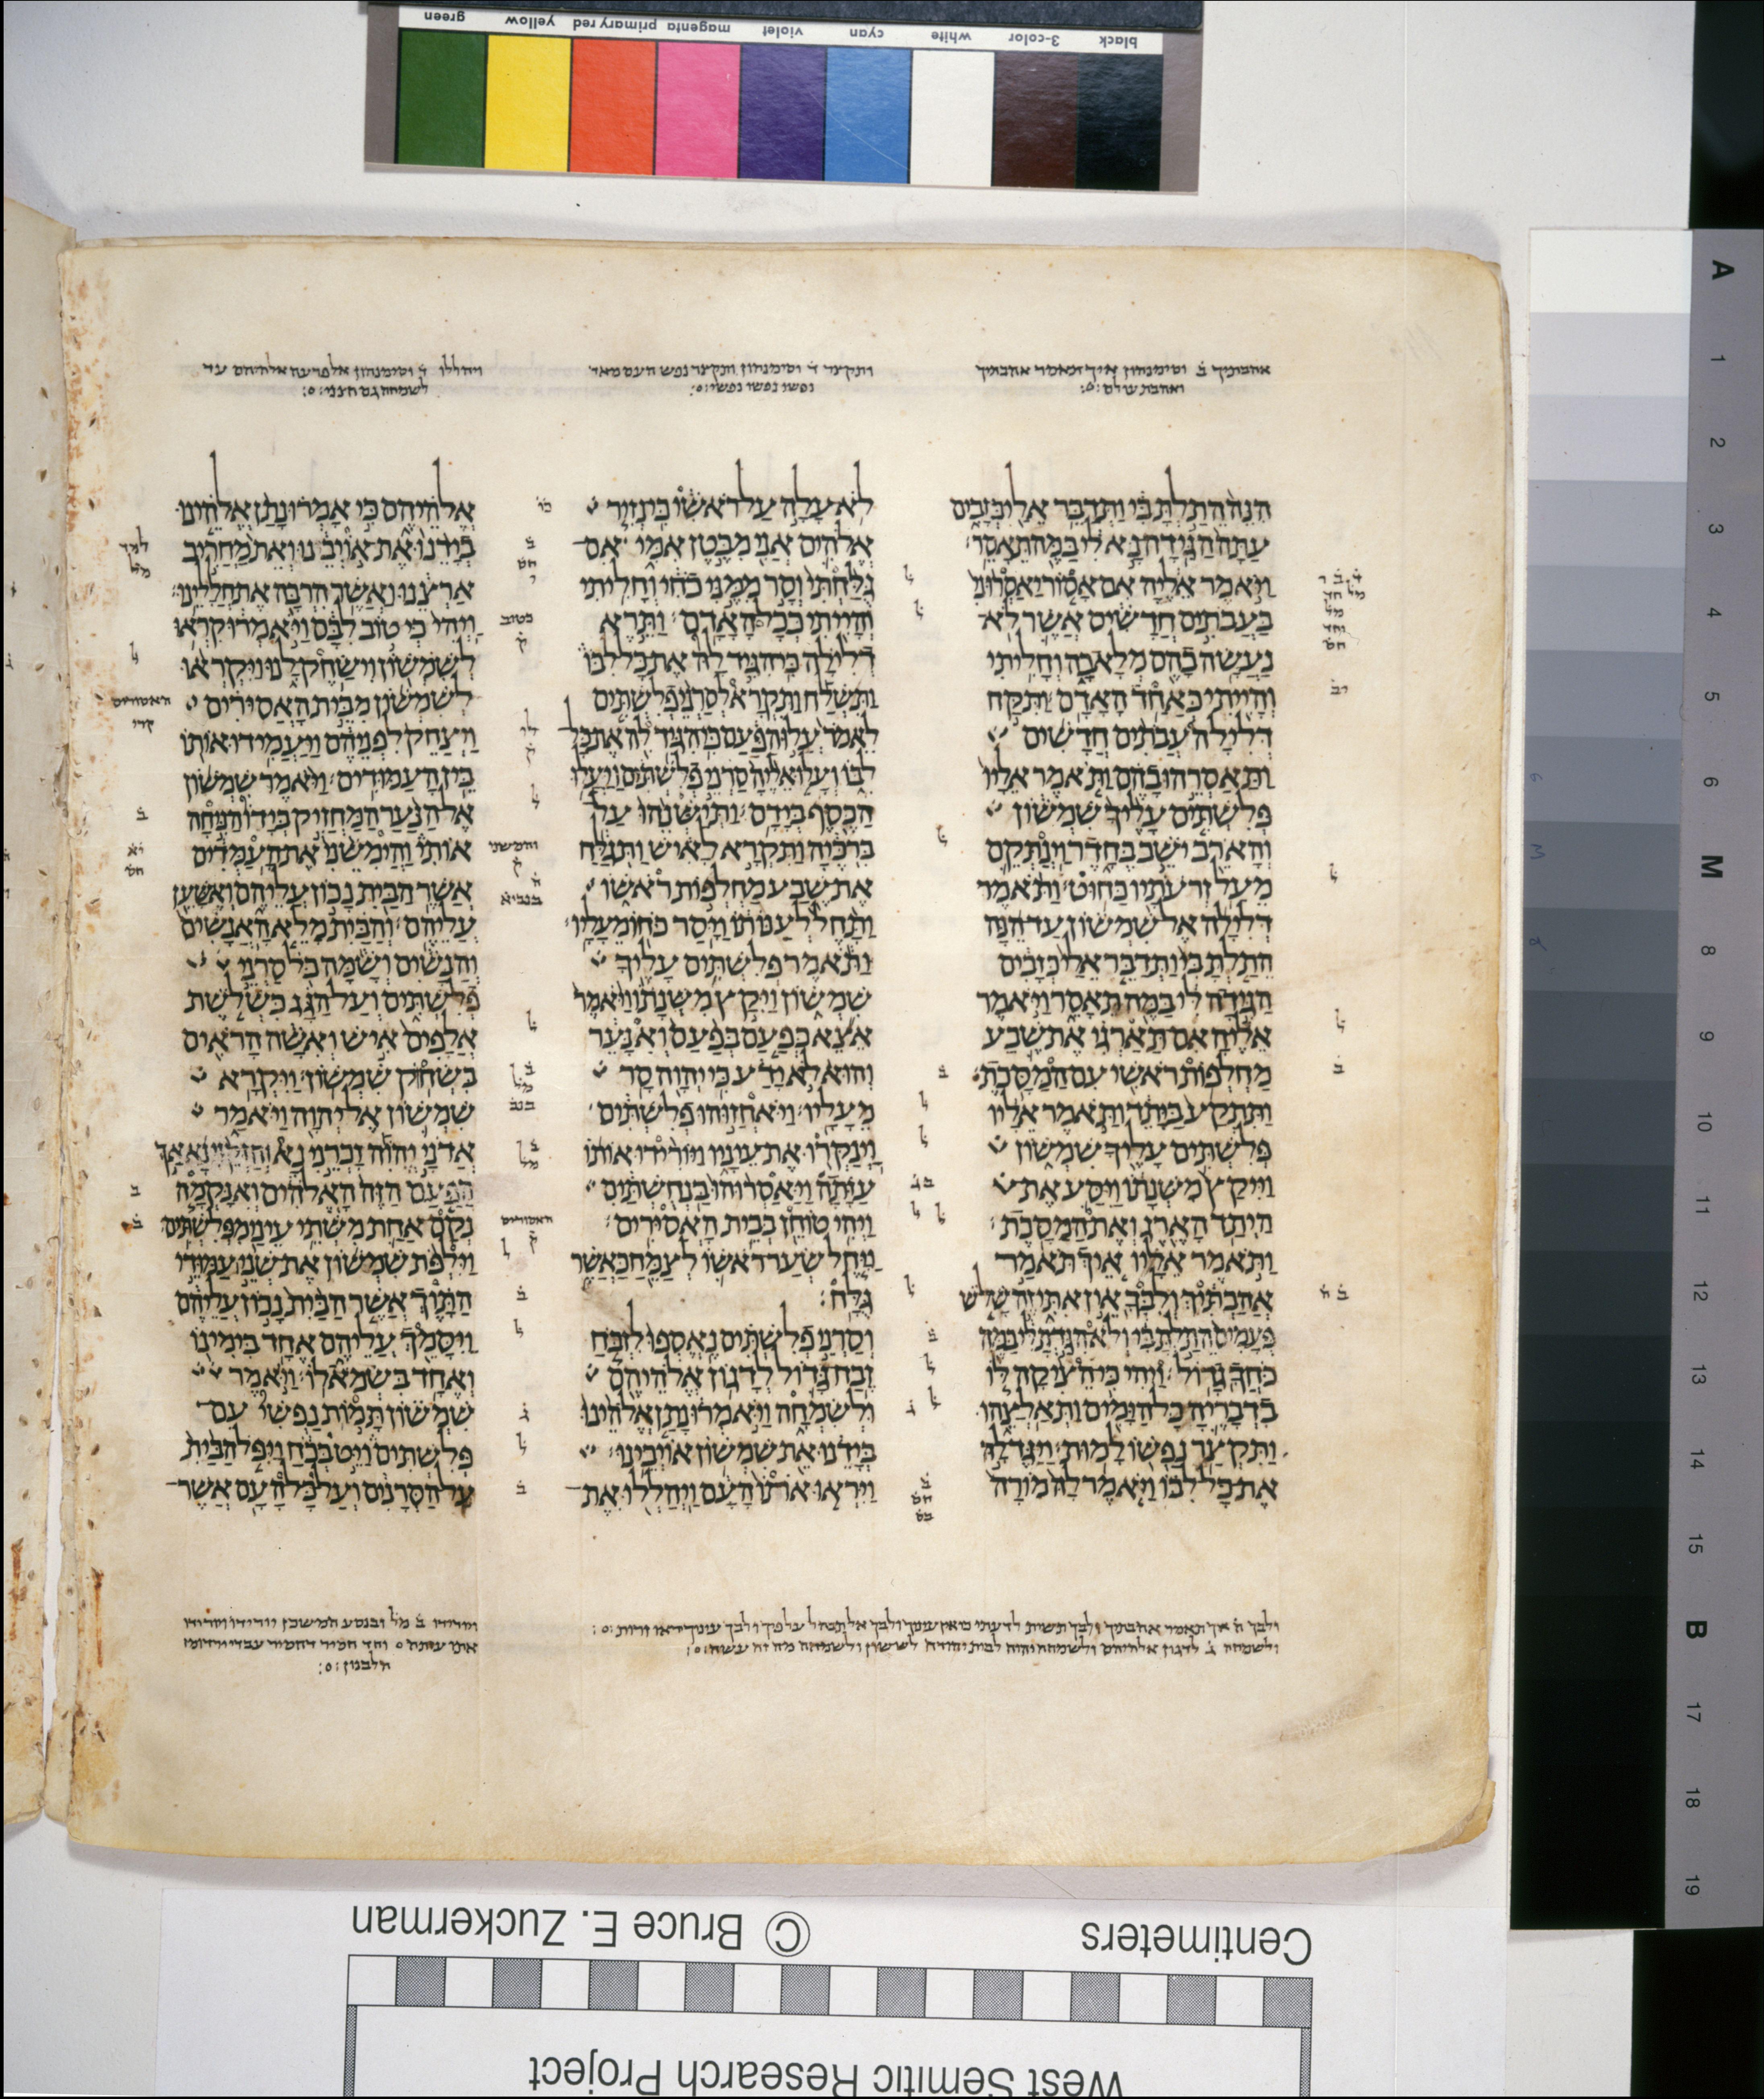 green yellow primary red magenta violet cyan white 3-color black
אהבותיך ב וסימנהון איך תאמר אהבתיך
ואהבת עולם
ותקצר ד וסימנהון ותקצר נפש העם מאד
נפשו נפשו נפשי
ויהללו ד וסימנהון אל פרעה אלהיהם עד
הנה התלת בי ותדבר אלי כזבים
עתה הגידה נא לי במה תאסר׃
ויאמר אליה אם אסור יאסרוני
בעבתים חדשים אשר לא
נעשה בהם מלאכה וחליתי
והייתי כאחד האדם׃ ותקח
דלילה עבתים חדשים
ותאסרהו בהם ותאמר אליו
פלשתים עליך שמשון
והארב ישב בחדר וינתקם
מעל זרעתיו כחוט׃ ותאמר
דלילה אל שמשון עד הנה
התלת בי ותדבר אלי כזבים
הגידה לי במה תאסר ויאמר
אליה אם תארגי את שבע
מחלפות ראשי עם המסכת׃
ותתקע ביתד ותאמר אליו
פלשתים עליך שמשון
וייקץ משנתו ויסע את
היתד הארג ואת המסכת׃
ותאמר אליו איך תאמר
אהבתיך ולבך אין אתי זה שלש
פעמים התלת בי ולא הגדת לי במה
כחך גדול׃ ויהי כי הציקה לו
בדבריה כל הימים ותאלצהו
ותקצר נפשו למות׃ ויגד לה
את כל לבו ויאמר לה מורה
לא עלה על ראשי כי נזיר
אלהים אני מבטן אמי אם
גלחתי וסר ממני כחי וחליתי
והייתי ככל האדם׃ ותרא
דלילה כי הגיד לה את כל לבו
ותשלח ותקרא לסרני פלשתים
לאמר עלו הפעם כי הגיד לה את כל
לבו ועלו אליה סרני פלשתים ויעלו
הכסף בידם׃ ותישנהו על
ברכיה ותקרא לאיש ותגלח
את שבע מחלפות ראשו
ותחל לענותו ויסר כחו מעליו׃
ותאמר פלשתים עליך
שמשון ויקץ משנתו ויאמר
אצא כפעם בפעם ואנער
והוא לא ידע כי יהוה סר
מעליו׃ ויאחזוהו פלשתים
וינקרו את עיניו ויורידו אותו
עזתה ויאסרוהו בנחשתים
ויהי טוחן בבית האסירים׃
ויחל שער ראשו לצמח כאשר
גלח׃
וסרני פלשתים נאספו לזבח
זבח גדול לדגון אלהיהם
ולשמחה ויאמרו נתן אלהינו
בידנו את שמשון אויבינו׃
ויראו אתו העם ויהללו את
אלהיהם כי אמרו נתן אלהינו
בידנו את אויבנו ואת מחריב
ארצנו ואשר הרבה את חללינו׃
ויהי כי טוב לבם ויאמרו קראו
לשמשון וישחק לנו ויקראו
לשמשון מבית האסירים
ויצחק לפניהם ויעמידו אותו
בין העמודים׃ ויאמר שמשון
אל הנער המחזיק בידו הניחה
אותי והימשני את העמדים
אשר הבית נכון עליהם ואשען
עליהם׃ והבית מלא האנשים
והנשים ושמה כל סרני
פלשתים ועל הגג כשלשת
אלפים איש ואשה הראים
בשחוק שמשון׃ ויקרא
שמשון אל יהוה ויאמר
אדני יהוה זכרני נא וחזקני נא אך
הפעם הזה האלהים ואנקמה
נקם אחת משתי עיני מפלשתים׃
וילפת שמשון את שני עמודי
התוך אשר הבית נכון עליהם
ויסמך עליהם אחד בימינו
ואחד בשמאלו׃ ויאמר
שמשון תמות נפשי עם
פלשתים ויט בכח ויפל הבית
על הסרנים ועל כל העם אשר
ולבך ה איך תאמר אהבתיך ולבך תשית לדעתי
ולשמחה ג לדגון אלהיהם ולשמחה יהיה לבית יהודה לששון ולשמחה מה זה עשה
ויורידו ב מל ובנסע המשכן יורידו ויורידו
אתו עזתה וחד חסיר
הלבנון
A 1 2 3 4 5 6 M 8 9 10 11 12 13 14 15 B 17 18 19
Centimeters
© Bruce E. Zuckerman
West Semitic Research Project